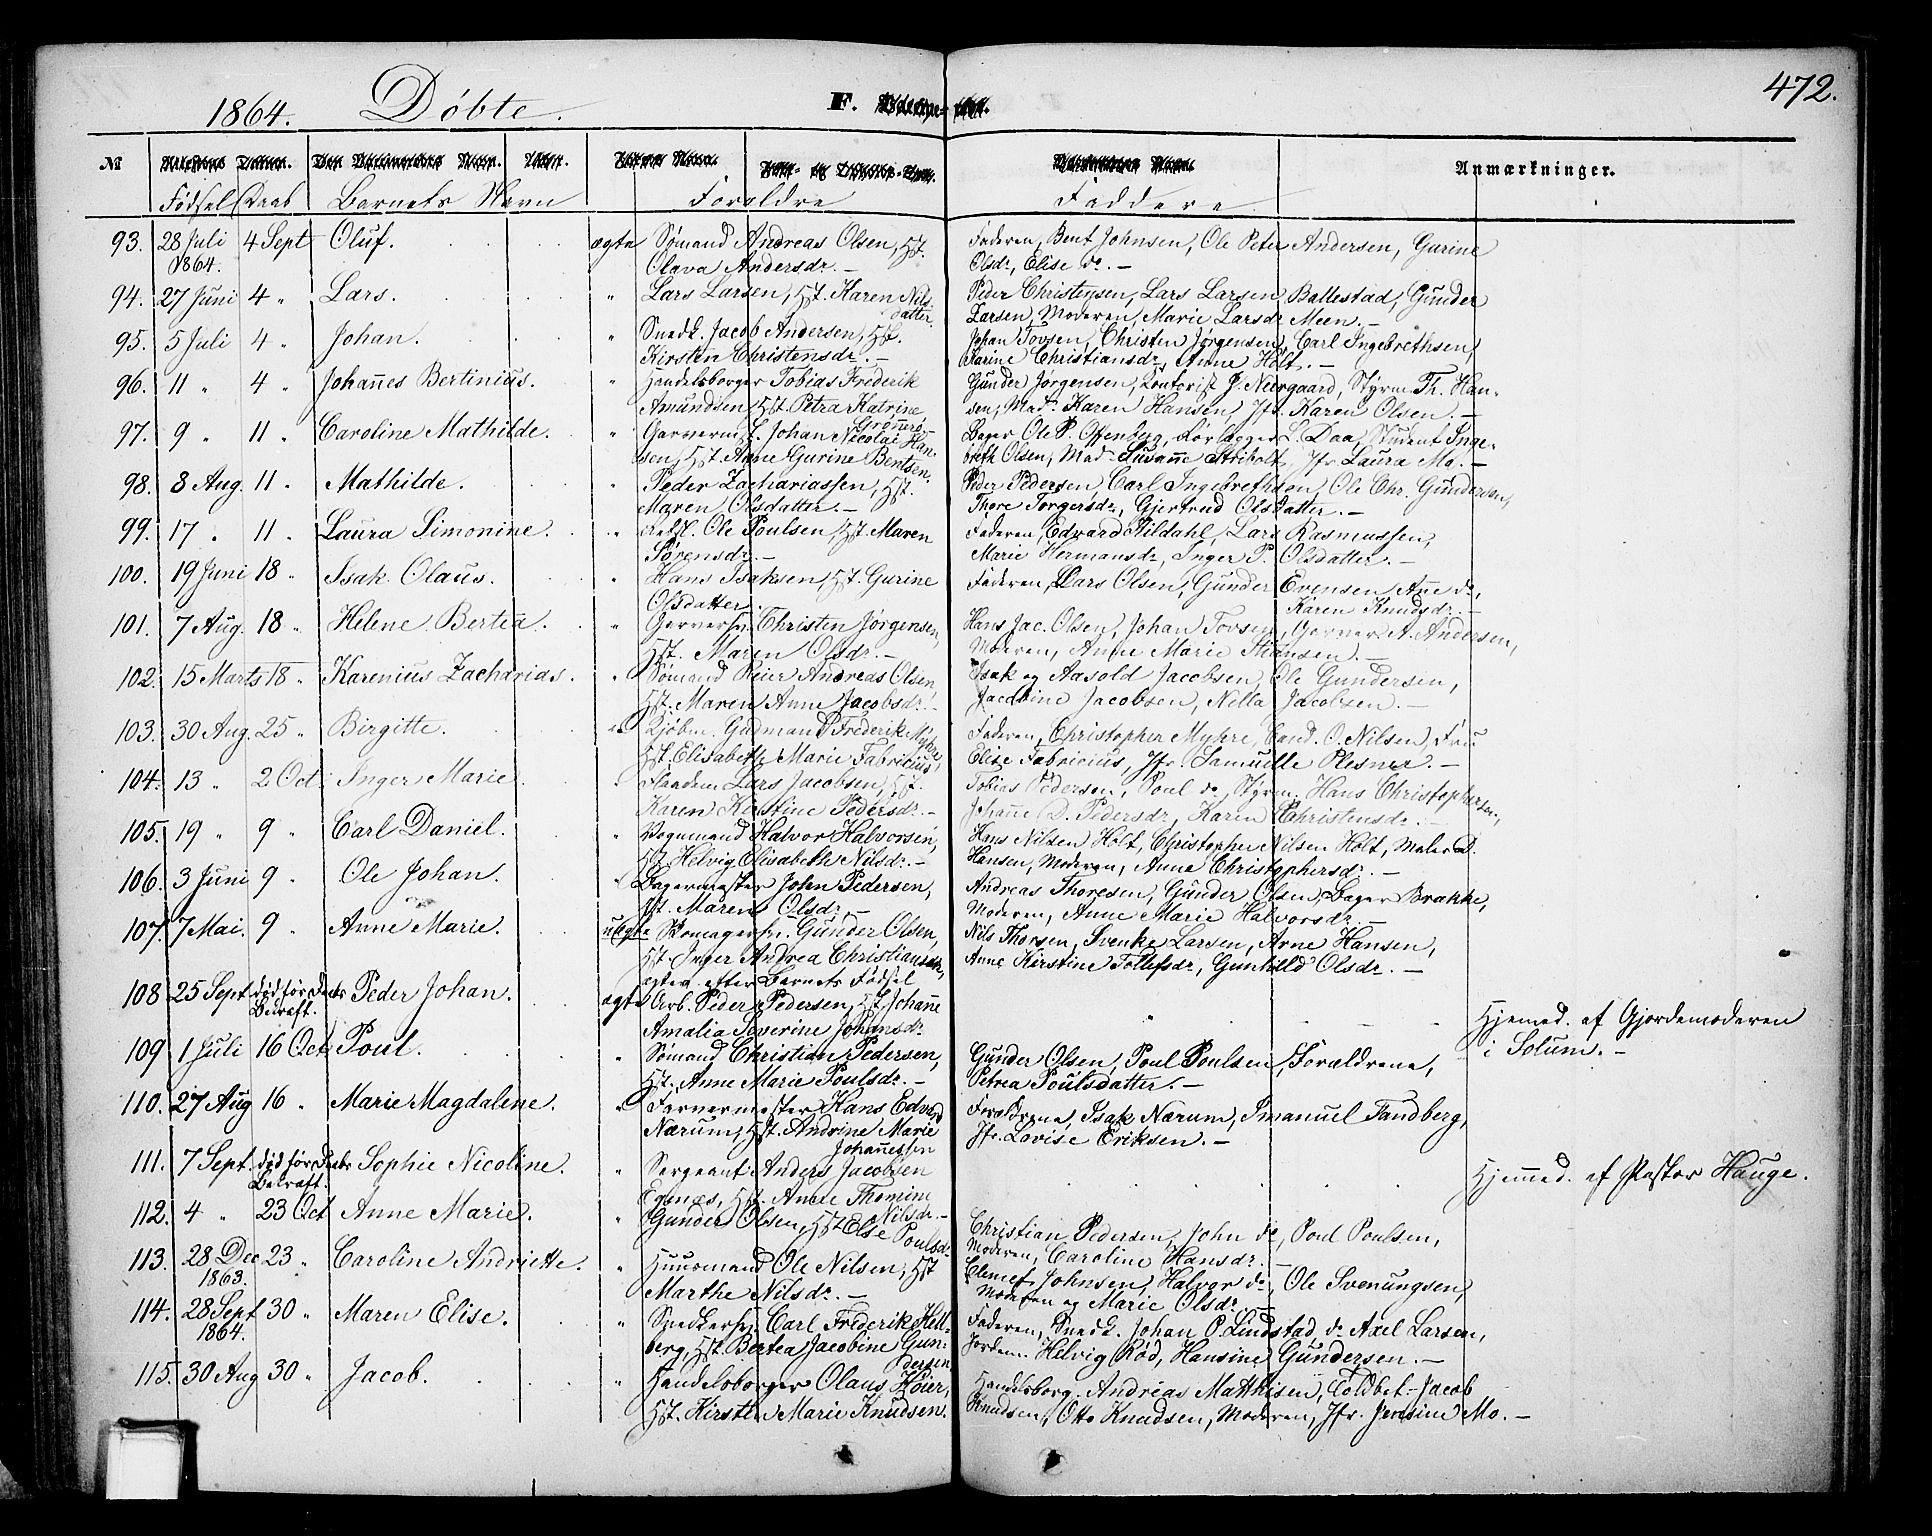 1864. Døbte. F. 472.
№ Anmærkninger.
Fødsel Daab Barnets Navn Forældre Faddere
93. 28 Juli 1864. 4 Sept Oluf. ægte Sømand Andreas Olsen, Hst. Faderen, Bent Johnsen, Ole Peter Andersen, Gurine
Olava Andersdr. — Olsdr, Elise do. —
94. 27 Juni 4 " Lars. " Lars Larsen, Hst. Karen Nilsdatter. Peder Christensen, Lars Larsen Ballestad, Gunder
Larsen, Moderen, Marie Larsdr Meen. —
95. 5 Juli 4 " Johan. " Snedk. Jacob Andersen, Hst. Johan Tovsen, Christen Jørgensen, Carl Ingebrethsen,
Kirsten Christensdr. — Karine Christiansdr, Anne Holt. —
96. 11 " 4 " Johañes Bertinius. " Handelsborger Tobias Frederik Gunder Jørgensen, Contorist J. Neergaard, Styrm. Th. Han-
Amundsen, Hst. Petra Katrine sen, Mad. Karen Hansen, Jfr. Karen Olsen. —
97. 9 " 11 " Caroline Mathilde. " Garverm. Johan Nicolai Han- Bager Ole P. Offenberg, L. Daa, Student Inge-
sen, Hst. Anne Gurine Bentsen. breth Olsen, Mad. Susañe Stribolt, Jfr Laura Mo. —
98. 8 Aug. 11 " Mathilde. " Peder Zachariassen, Hst. Peder Pedersen, Carl Ingebrethsen, Ole Chr. Gundersen,
Maren Olsdatter. — Thore Torgersdr, Gjertrud Olsdatter. —
99. 17 " 11 " Laura Simonine. " Ole Poulsen, Hst. Maren Faderen, Edvard Tildahl, Lars Rasmussen,
Sørensdr. — Marie Hermansdr, Inger P. Olsdatter. —
100. 19 Juni 18 " Isak Olaus. " Hans Isaksen, Hst. Gurine Faderen, Lars Olsen, Gunder Evensen, Añe do,
Olsdatter. Karen Knudsdr. —
101. 7 Aug. 18 " Helene Bertea. " Garversv. Christen Jørgensen, Hans Jac. Olsen, Johan Tovsen, Garver A. Andersen,
Hst. Maren Olsdr. — Moderen, Anne Marie Stiansen. —
102. 15 Marts 18 " Karenius Zacharias. " Sømand Reier Andreas Olsen, Isak og Aasold Jacobsen, Ole Gundersen,
Hst. Maren Anne Jacobsdr. — Jacobine Jacobsen, Nilla Jacobsen. —
103. 30 Aug. 25 " Birgitte. " Kjøbm. Gudmand Frederik Myhre, Faderen, Christopher Myhre, Cand. O. Nilsen, Fru
Hst. Elisabeth Marie Fabricius Elise Fabricius, Jfr Samuelle Plesner. —
104. 13 " 2 Oct. Inger Marie. " Lars Jacobsen, Hst. Tobias Pedersen, Poul do, Styrm. Hans Christophersen,
Karen Kirstine Pedersdr. — Johañe D. Pedersdr, Karen Christensdr. —
105. 19 " 9 " Carl Daniel. " Vognmand Halvor Halvorsen, Hans Nilsen Holt, Christopher Nilsen Holt, Maler D.
Hst. Helvig Elisabeth Nilsdr. — Hansen, Moderen, Anne Christophersdr. —
106. 3 Juni 9 " Ole Johan. " Bagermester John Pedersen, Andreas Thoresen, Gunder Olsen, Bager Brakke,
Hst. Maren Olsdr. — Moderen, Anne Marie Halvorsdr. —
107. 7 Mai. 9 " Anne Marie. uægte Skomagersv. Gunder Olsen, Nils Thorsen, Svenke Larsen, Arne Hansen,
Hst. Inger Andrea Christiansen, Anne Kirstine Tollefsdr, Gunhild Olsdr. —
ægtev. efter Barnets Fødsel
108 25 Sept. død før Daabs Bekræft. Peder Johan. ægte Arb. Peder Pedersen, Hst Johañe Hjemed. af Gjordemoderen
Amalia Severine Johansdr. i Solum. —
109 1 Juli 16 Oct. Poul. " Sømand Christian Pedersen, Gunder Olsen, Poul Poulsen, Forældrene,
Hst. Anne Marie Poulsdr. — Petrea Poulsdatter. —
110. 27 Aug 16 " Marie Magdalene. " Farvermester Hans Edvard Forældrene, Isak Nærum, Imanuel Tandberg,
Nærum, Hst. Andrine Marie Johañessen Jfr. Lovise Eriksen. —
111. 7 Sept. død før Daabs Bekræft. Sophie Nicoline. " Sergeant Anders Jacobsen Hjemmed. af Pastor Hauge.
Egenæs, Hst. Anne Thomine Nilsdr. —
112. 4 " 23 Oct Anne Marie. " Gunder Olsen, Hst Else Poulsdr. Christian Pedersen, John do, Poul Poulsen,
Moderen, Caroline Hansdr. —
113. 28 Dec 1863. 23 " Caroline Andriette. " Huusmand Ole Nilsen, Hst Clemet Johnsen, Halvor do, Ole Svenungsen,
Marthe Nilsdr. — Moderen og Marie Olsdr. —
114. 28 Sept 1864. 30 " Maren Elise. " Snedkersv. Carl Frederik Hell- Faderen, Snedk. Johan P. Lindstad, do Axel Larsen,
berg, Hst. Bertea Jacobine Gundersen Jordem. Helvig Rød, Hansine Gundersen. —
115. 30 Aug 30 " Jacob. " Handelsborger Olaus Høier, Handelsborg. Andreas Matthisen, Toldbet. Jacob
Hst. Kirsten Marie Knudsen. Knudsen, Otto Knudsen, Moderen, Jfr. Jensine Mo. —